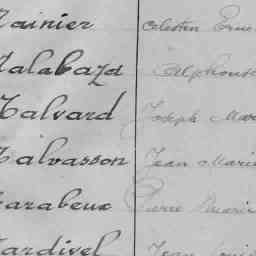 Tainier Célestin Ern
Talabaza Alphons
Talvard Joseph Mar
Talvasson Jean Marie
Tarabeux Pierre Marie
Tardivel Jean Louis